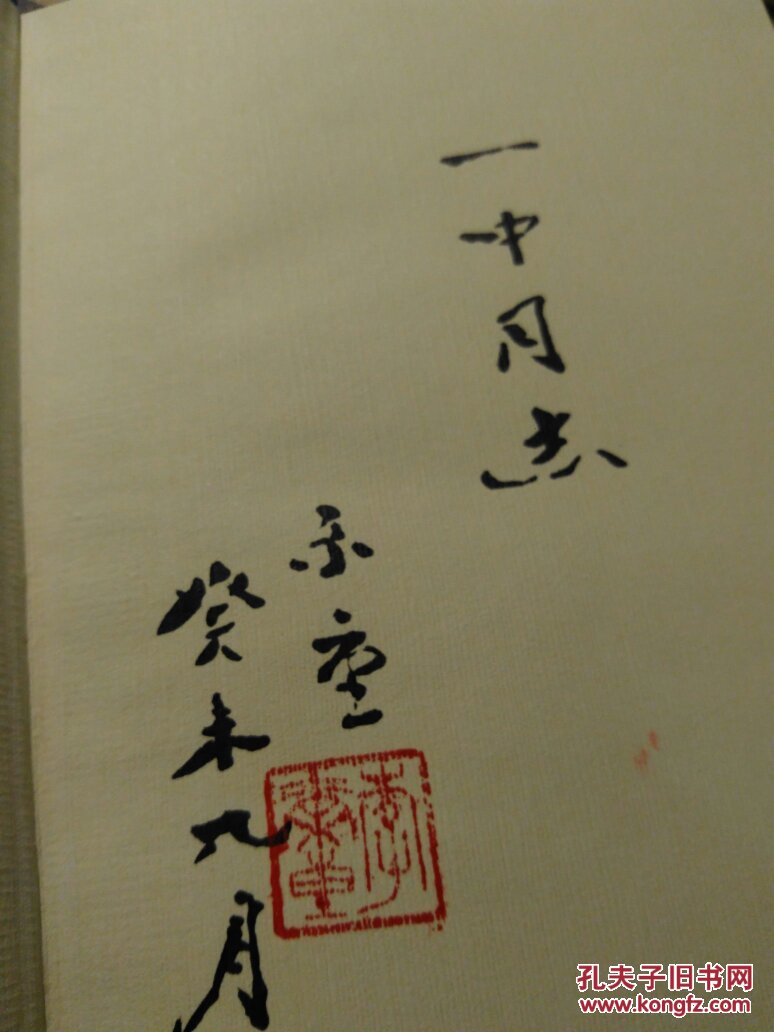 一中同志
癸未九月
孔夫子旧书网
www.kongfz.com